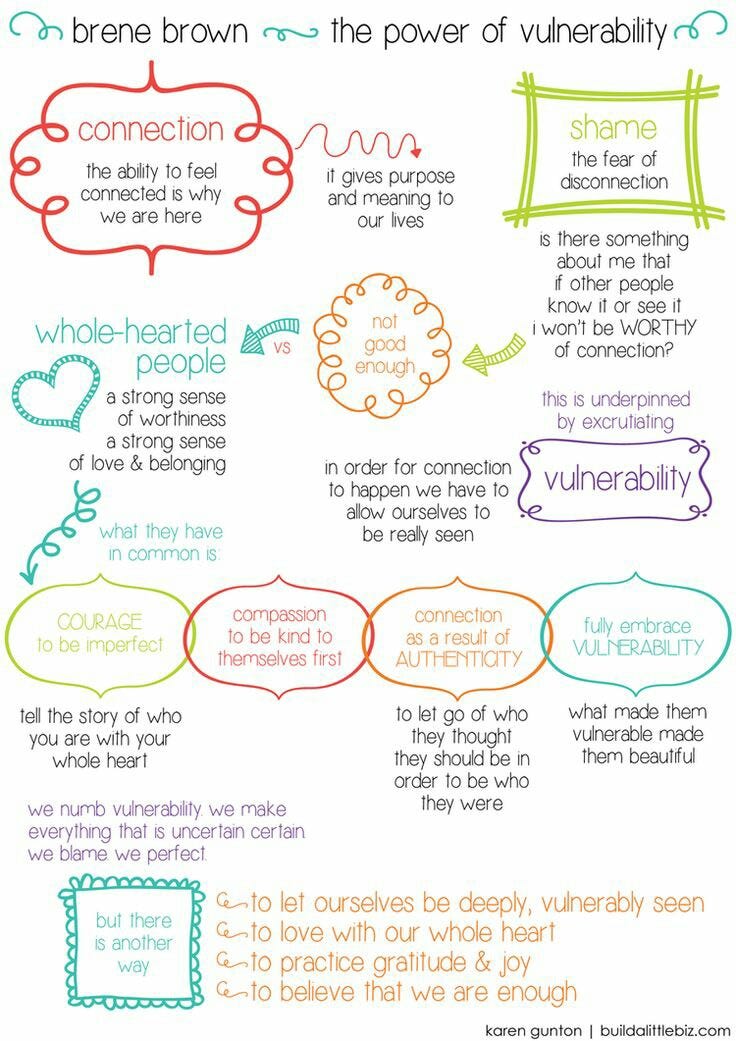 brene brown the power of vulnerability
connection
the ability to feel
connected is why
we are here
it gives purpose
and meaning to
our lives
shame
the fear of
disconnection
is there something
about me that
if other people
know it or see it
i won't be WORTHY
of connection?
not
good
enough
vs
whole-hearted
people
a strong sense
of worthiness
a strong sense
of love & belonging
this is underpinned
by excrutiating
vulnerability
in order for connection
to happen we have to
allow ourselves to
be really seen
what they have
in common is:
COURAGE
to be imperfect
compassion
to be kind to
themselves first
connection
as a result of
AUTHENTICITY
fully embrace
VULNERABILITY
tell the story of who
you are with your
whole heart
to let go of who
they thought
they should be in
order to be who
they were
what made them
vulnerable made
them beautiful
we numb vulnerability. we make
everything that is uncertain certain.
we blame. we perfect.
but there
is another
way
to let ourselves be deeply, vulnerably seen
to love with our whole heart
to practice gratitude & joy
to believe that we are enough
karen gunton | buildalittlebiz.com